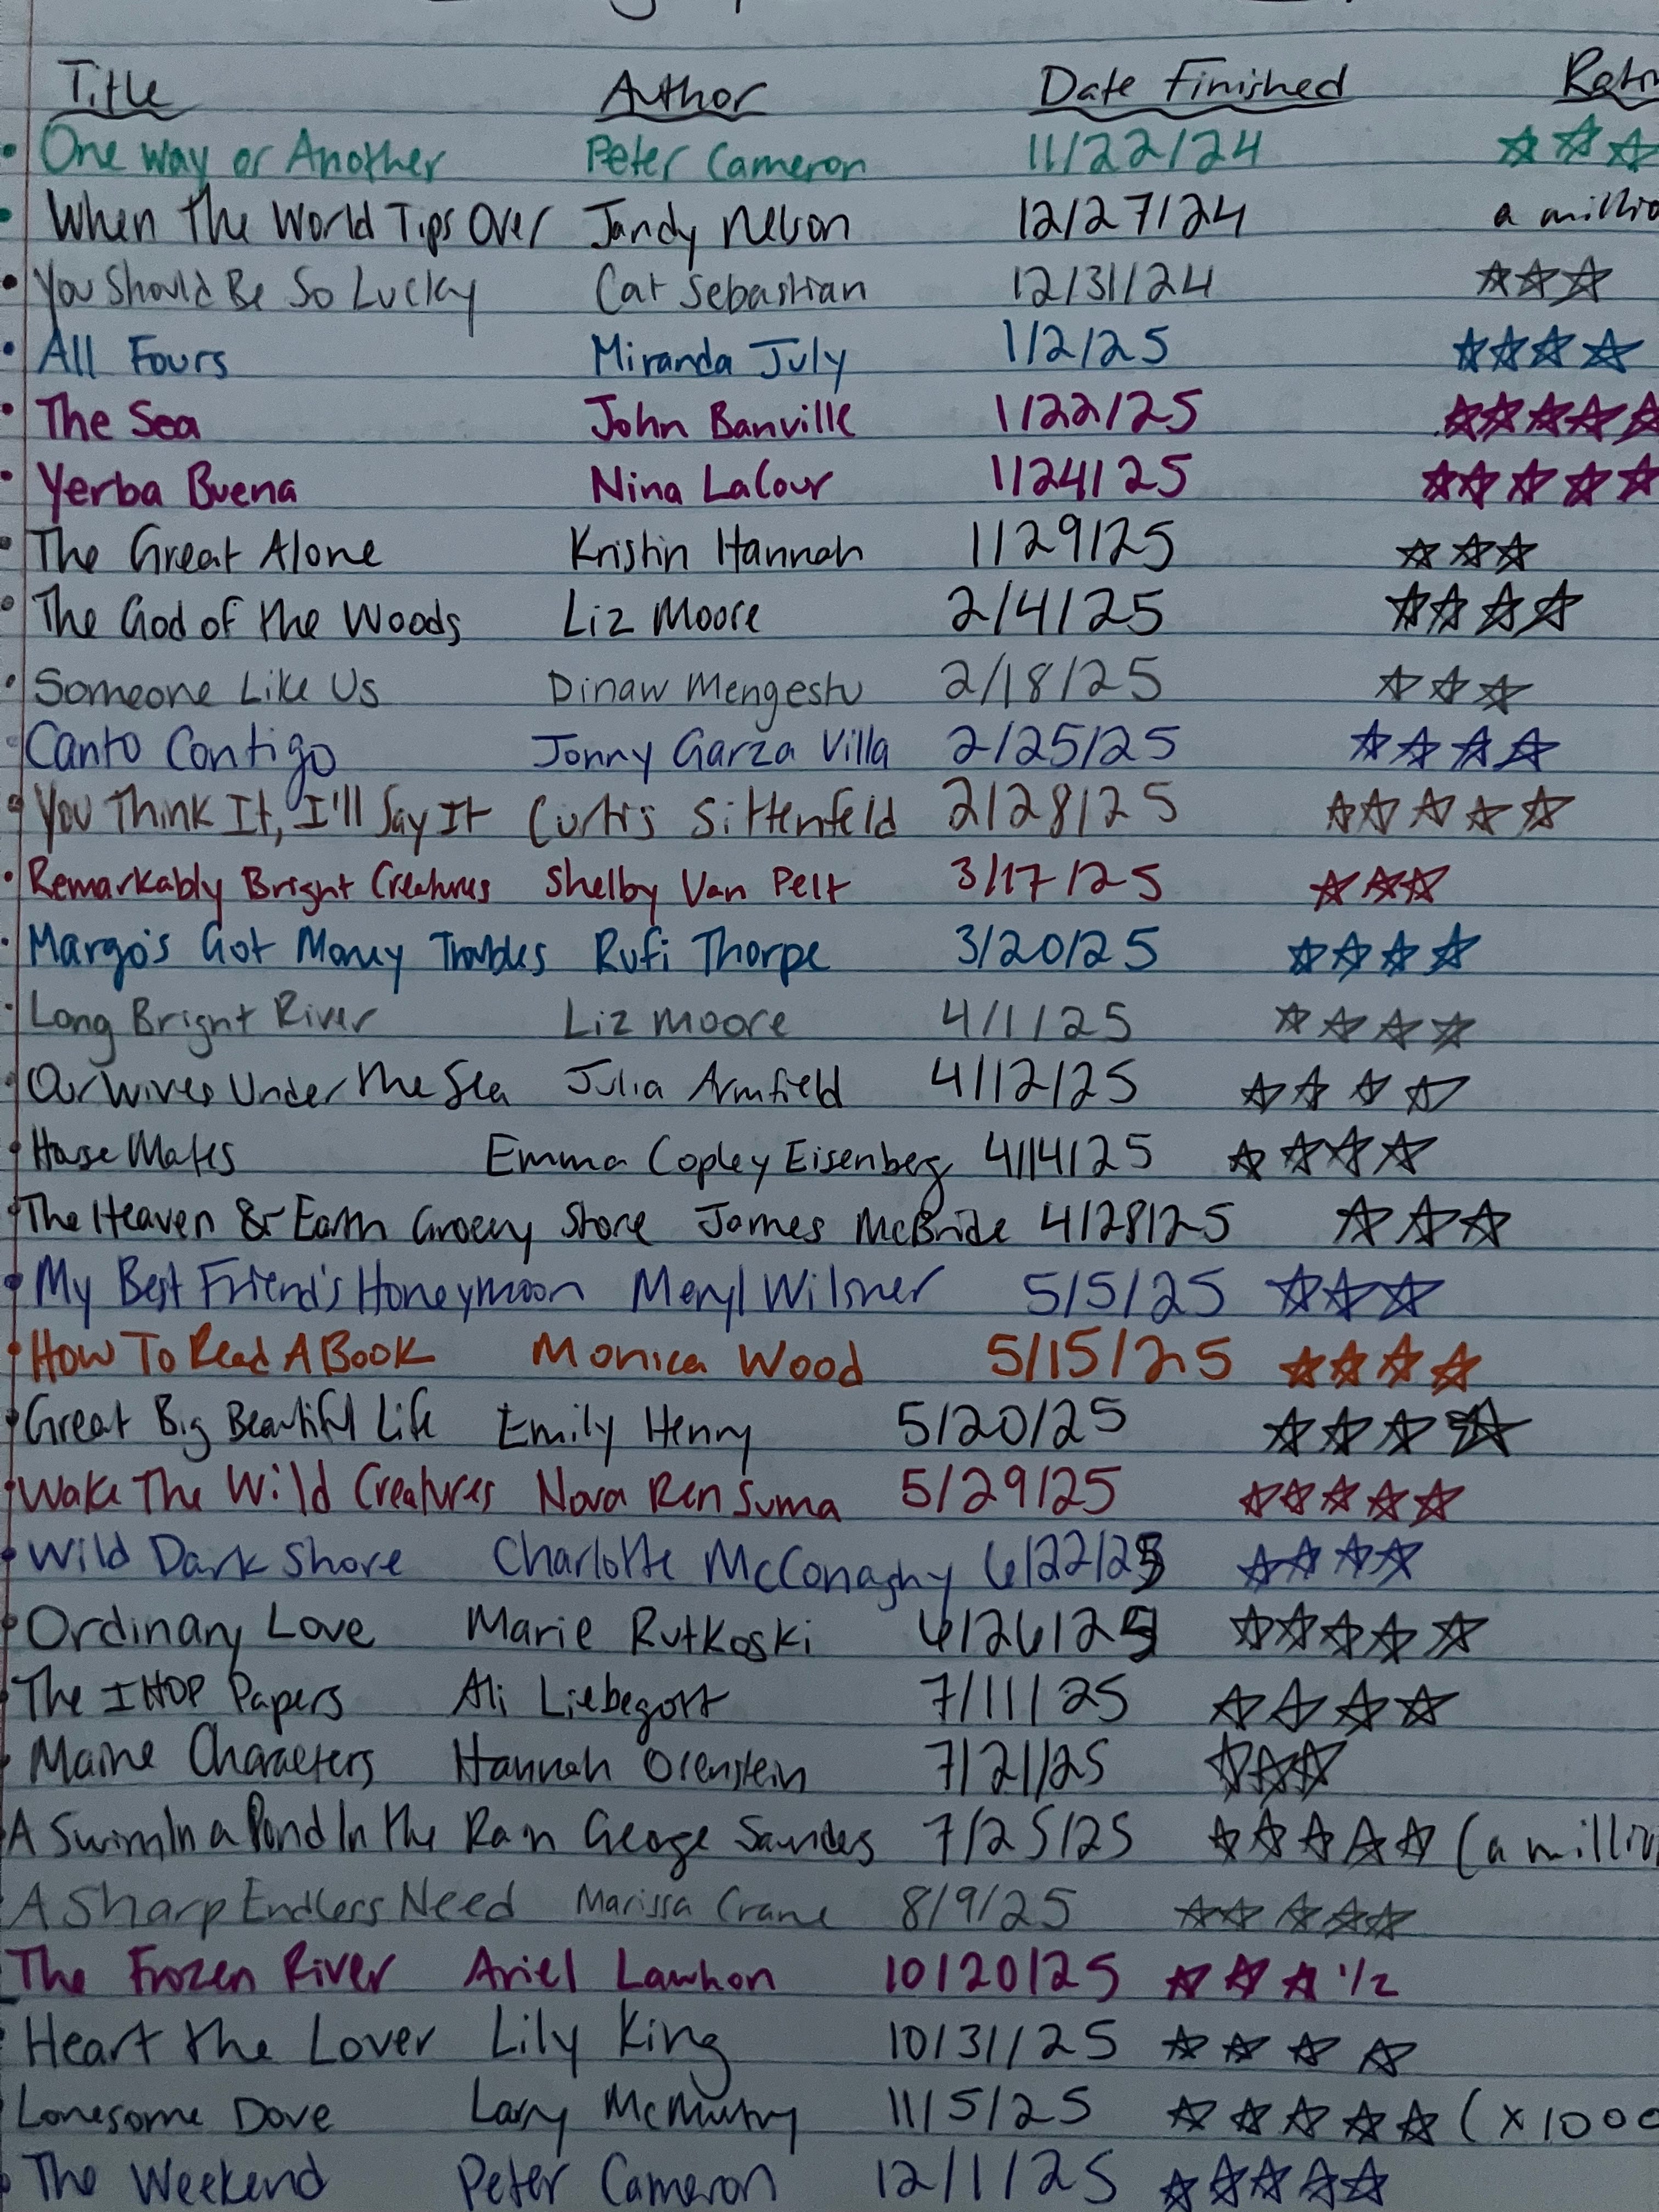 Title Author Date Finished
• One Way or Another Peter Cameron 11/22/24 ☆☆☆
• When The World Tips Over Jandy Nelson 12/27/24 a
• You Should Be So Lucky Cat Sebastian 12/31/24 ☆☆☆
• All Fours Miranda July 1/2/25 ☆☆☆☆
• The Sea John Banville 1/22/25 ☆☆☆☆☆
• Yerba Buena Nina LaCour 1/24/25 ☆☆☆☆☆
• The Great Alone Kristin Hannah 1/29/25 ☆☆☆
• The God of the Woods Liz Moore 2/4/25 ☆☆☆☆
• Someone Like Us Dinaw Mengestu 2/18/25 ☆☆☆
• Canto Contigo Jonny Garza Villa 2/25/25 ☆☆☆☆
• You Think It, I'll Say It Curtis Sittenfeld 2/28/25 ☆☆☆☆☆
• Remarkably Bright Creatures Shelby Van Pelt 3/17/25 ☆☆☆
• Margo's Got Money Troubles Rufi Thorpe 3/20/25 ☆☆☆☆
• Long Bright River Liz Moore 4/1/25 ☆☆☆☆
• Our Wives Under The Sea Julia Armfield 4/12/25 ☆☆☆☆
• House Mates Emma Copley Eisenberg 4/14/25 ☆☆☆☆
• The Heaven & Earth Grocery Store James McBride 4/28/25 ☆☆☆
• My Best Friend's Honeymoon Meryl Wilsner 5/5/25 ☆☆☆
• How To Read A Book Monica Wood 5/15/25 ☆☆☆☆
• Great Big Beautiful Life Emily Henry 5/20/25 ☆☆☆☆
• Wake The Wild Creatures Nova Ren Suma 5/29/25 ☆☆☆☆☆
• Wild Dark Shore Charlotte McConaghy 6/22/25 ☆☆☆☆
• Ordinary Love Marie Rutkoski 6/26/25 ☆☆☆☆☆
• The IHOP Papers Ali Liebegott 7/11/25 ☆☆☆☆
• Maine Characters Hannah Orenstein 7/21/25 ☆☆☆
A Swim In a Pond In the Rain George Saunders 7/25/25 ☆☆☆☆☆ (a
A Sharp Endless Need Marissa Crane 8/9/25 ☆☆☆☆☆
The Frozen River Ariel Lawhon 10/20/25 ☆☆☆ 1/2
• Heart the Lover Lily King 10/31/25 ☆☆☆☆
• Lonesome Dove Larry McMurtry 11/5/25 ☆☆☆☆☆ (x1000
• The Weekend Peter Cameron 12/1/25 ☆☆☆☆☆